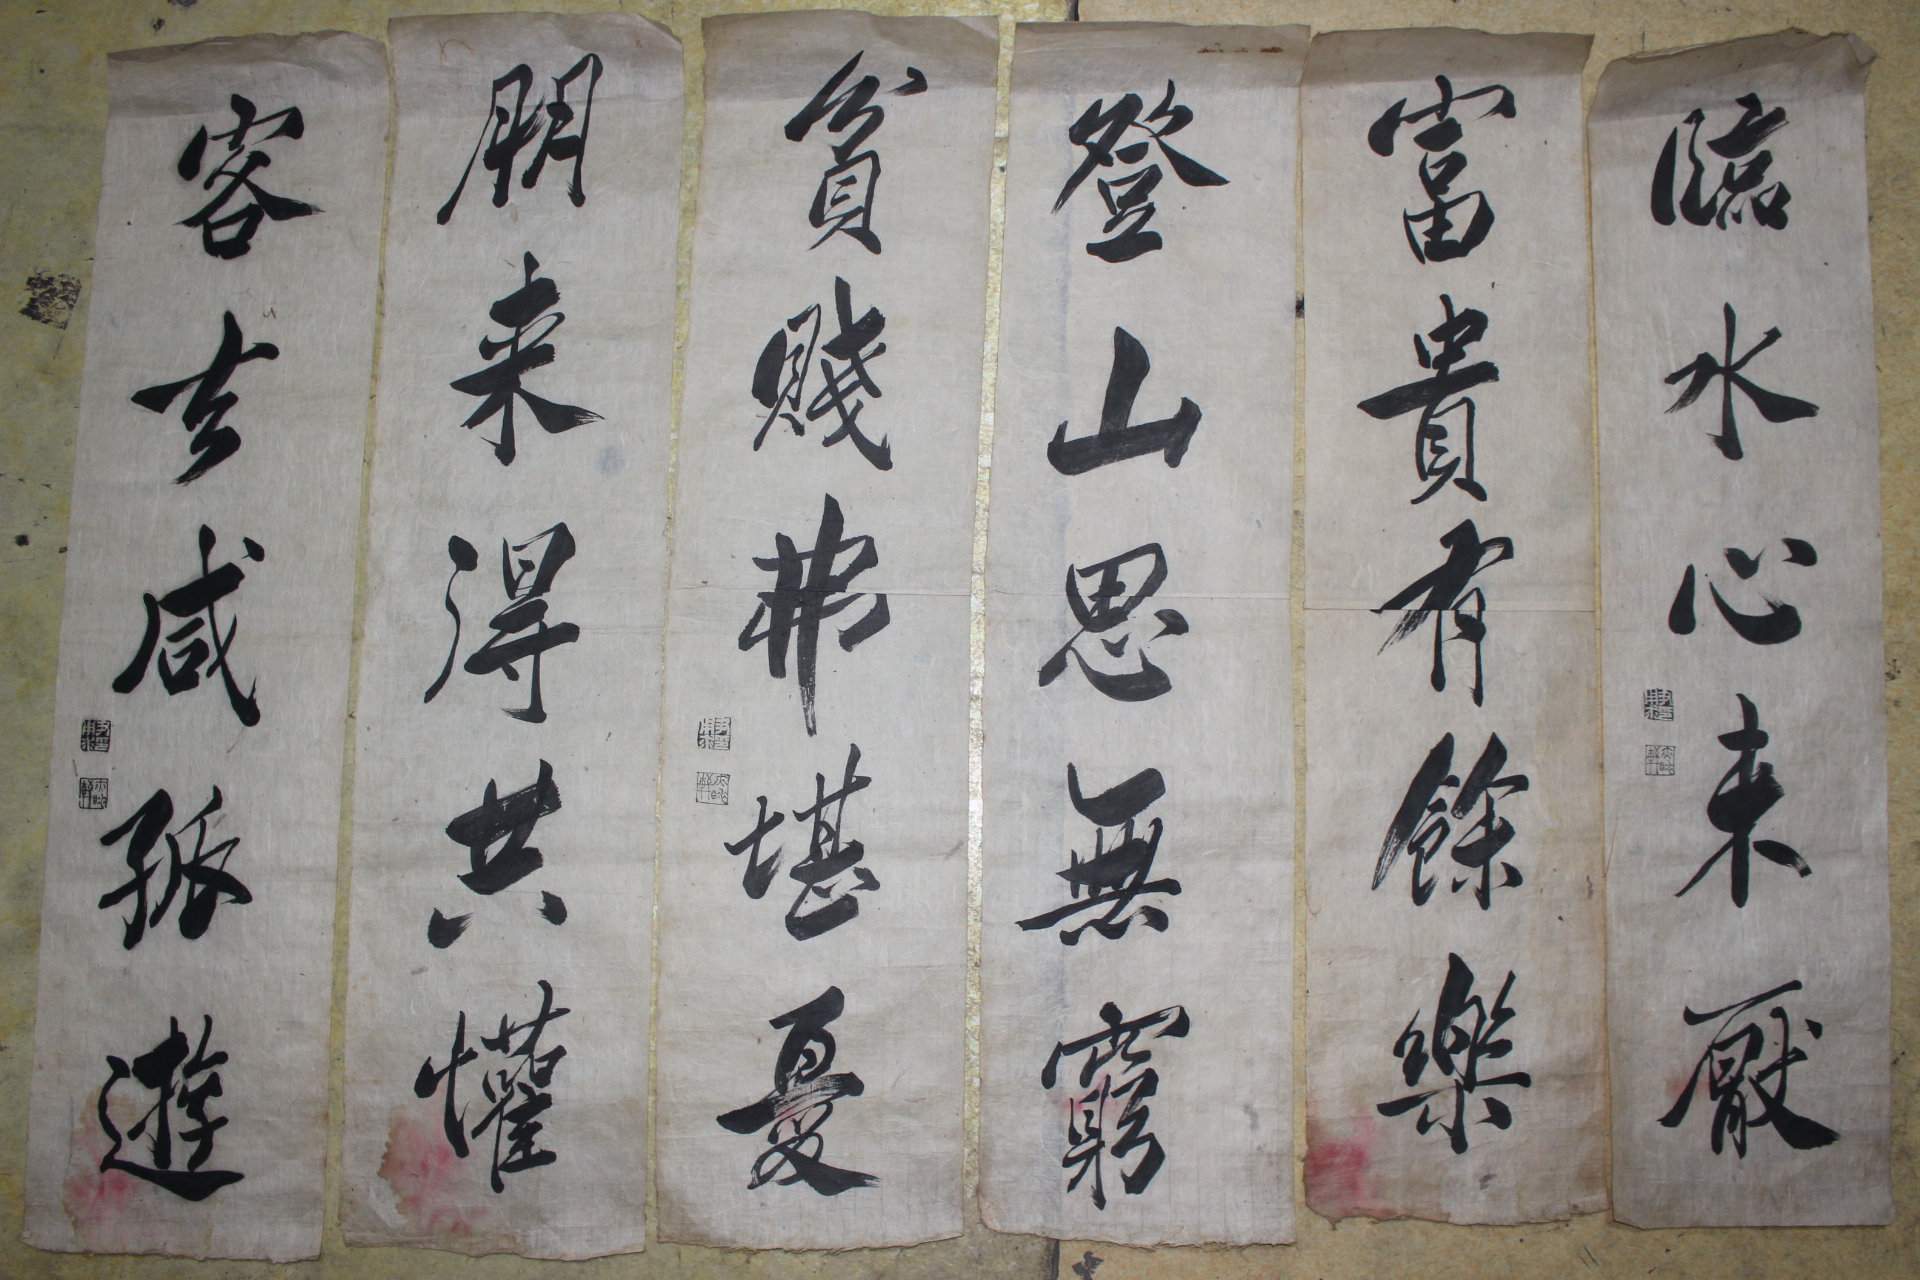 臨水心未厭
富貴有餘樂
登山思無窮
貧賤弗堪憂
朋来得共懽
客去咸孤遊